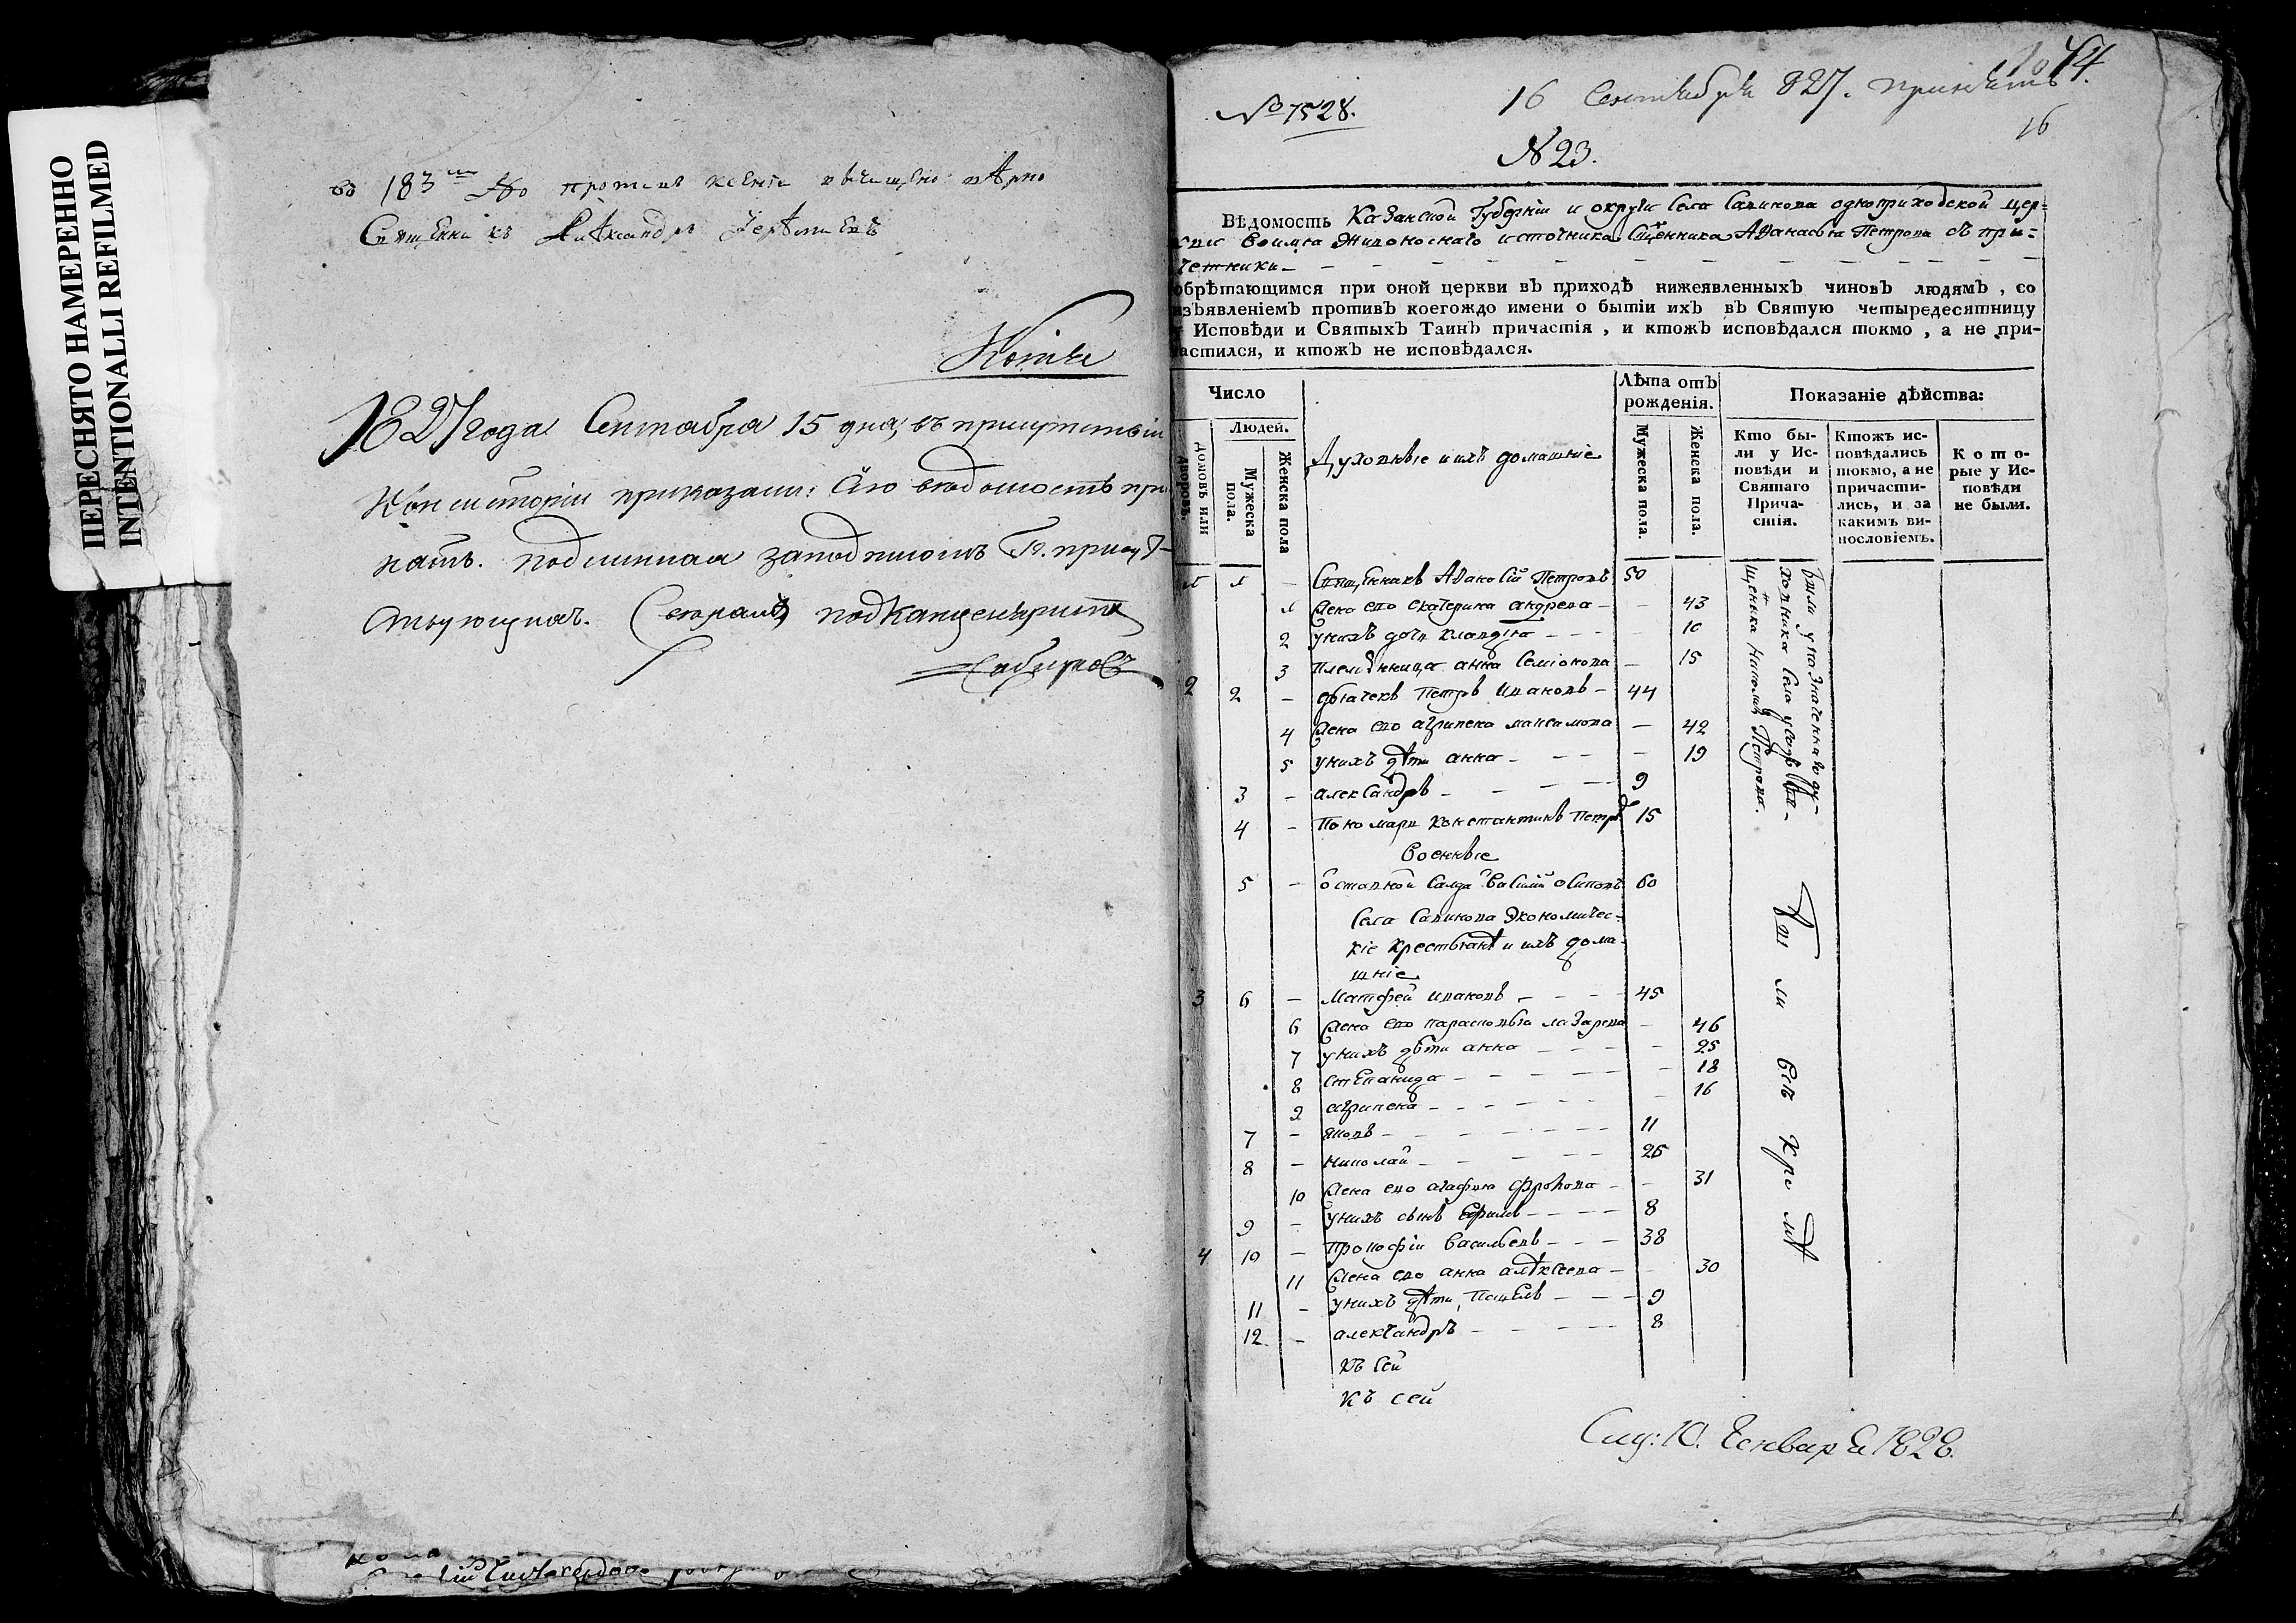 ПЕРЕСНЯТО НАМЕРЕННО
INTENTIONALLI REFILMED
во 183 противъ вѣрно
Священникъ Александръ
Копия
1827 года Сентября 15 дня, въ присутствіи
Консисторіи приказали: Сію вѣдомость при
нять. подлинная заподписомъ Гг. присут-
ствующихъ. подканцеляристъ
№ 7528.
16 Сентября 827. принять
16
№ 23.
Вѣдомость Казанской Губерніи и округи Села Савинова одноприходской цер=
кви Воимя Живоноснаго источника Священника Аѳанасья Петрова съ при=
четники
обрѣтающимся при оной церкви въ приходѣ нижеявленныхъ чиновъ людямъ, со
изъявленіемъ противъ коегождо имени о бытіи ихъ въ Святую четыредесятницу
у Исповѣди и Святыхъ Таинъ причастія, и ктожъ исповѣдался токмо, а не при-
частился, и ктожъ не исповѣдался.
Число
Людей.
домовъ или дворовъ.
Мужеска пола.
Женска пола
Духовные и ихъ домашніе
Лѣта отъ рожденія.
Мужеска пола.
Женска пола.
Показаніе дѣйства:
Кто бы-
ли у Ис-
повѣди и
Святаго
Прича-
стія.
Ктожъ ис-
повѣдались
токмо, а не
причасти-
лись, и за
какимъ ви-
нословіемъ.
К о т о-
рые у Ис-
повѣди
не были.
1 1 – Священникъ Аѳанасій Петровъ 50
1 Жена его екатерина андрева – – 43
2 унихъ дочь клавдія – – – – 10
3 Племянница анна Семіонова – 15
2 2 – дьячекъ Петръ Ивановъ – 44
4 Жена его агрипена максимова – 42
5 унихъ дѣти анна – – – – 19
3 – александръ – – – – 9
4 – Пономарь константинъ Петровъ 15
военные
5 – отставной Салда Василий осиповъ 60
Села Савинова Экономичес-
кіе крестьянѣ и ихъ дома-
шніе
3 6 – Матфей ивановъ – – – 45
6 Жена его парасковья лазарева – 46
7 унихъ дѣти анна – – – – 25
8 степанида – – – – – – 18
9 агрипена – – – – – – 16
7 – яковъ – – – – – – 11
8 – николай – – – – – 26
10 Жена его агафия фролова – – 31
9 – унихъ сынъ Ефимъ – – – – 8
4 10 – Прокофіи васильевъ – – – 38
11 Жена его анна алѣксеева – – 30
11 – унихъ дѣти, Павелъ – – – 9
12 – александръ – – – – 8
къ сей
къ сей
были у
ховника Села
щенника Петрова.
Бы ли
всѣ
кре мѣ
Слу: 10. Генваря 1828.